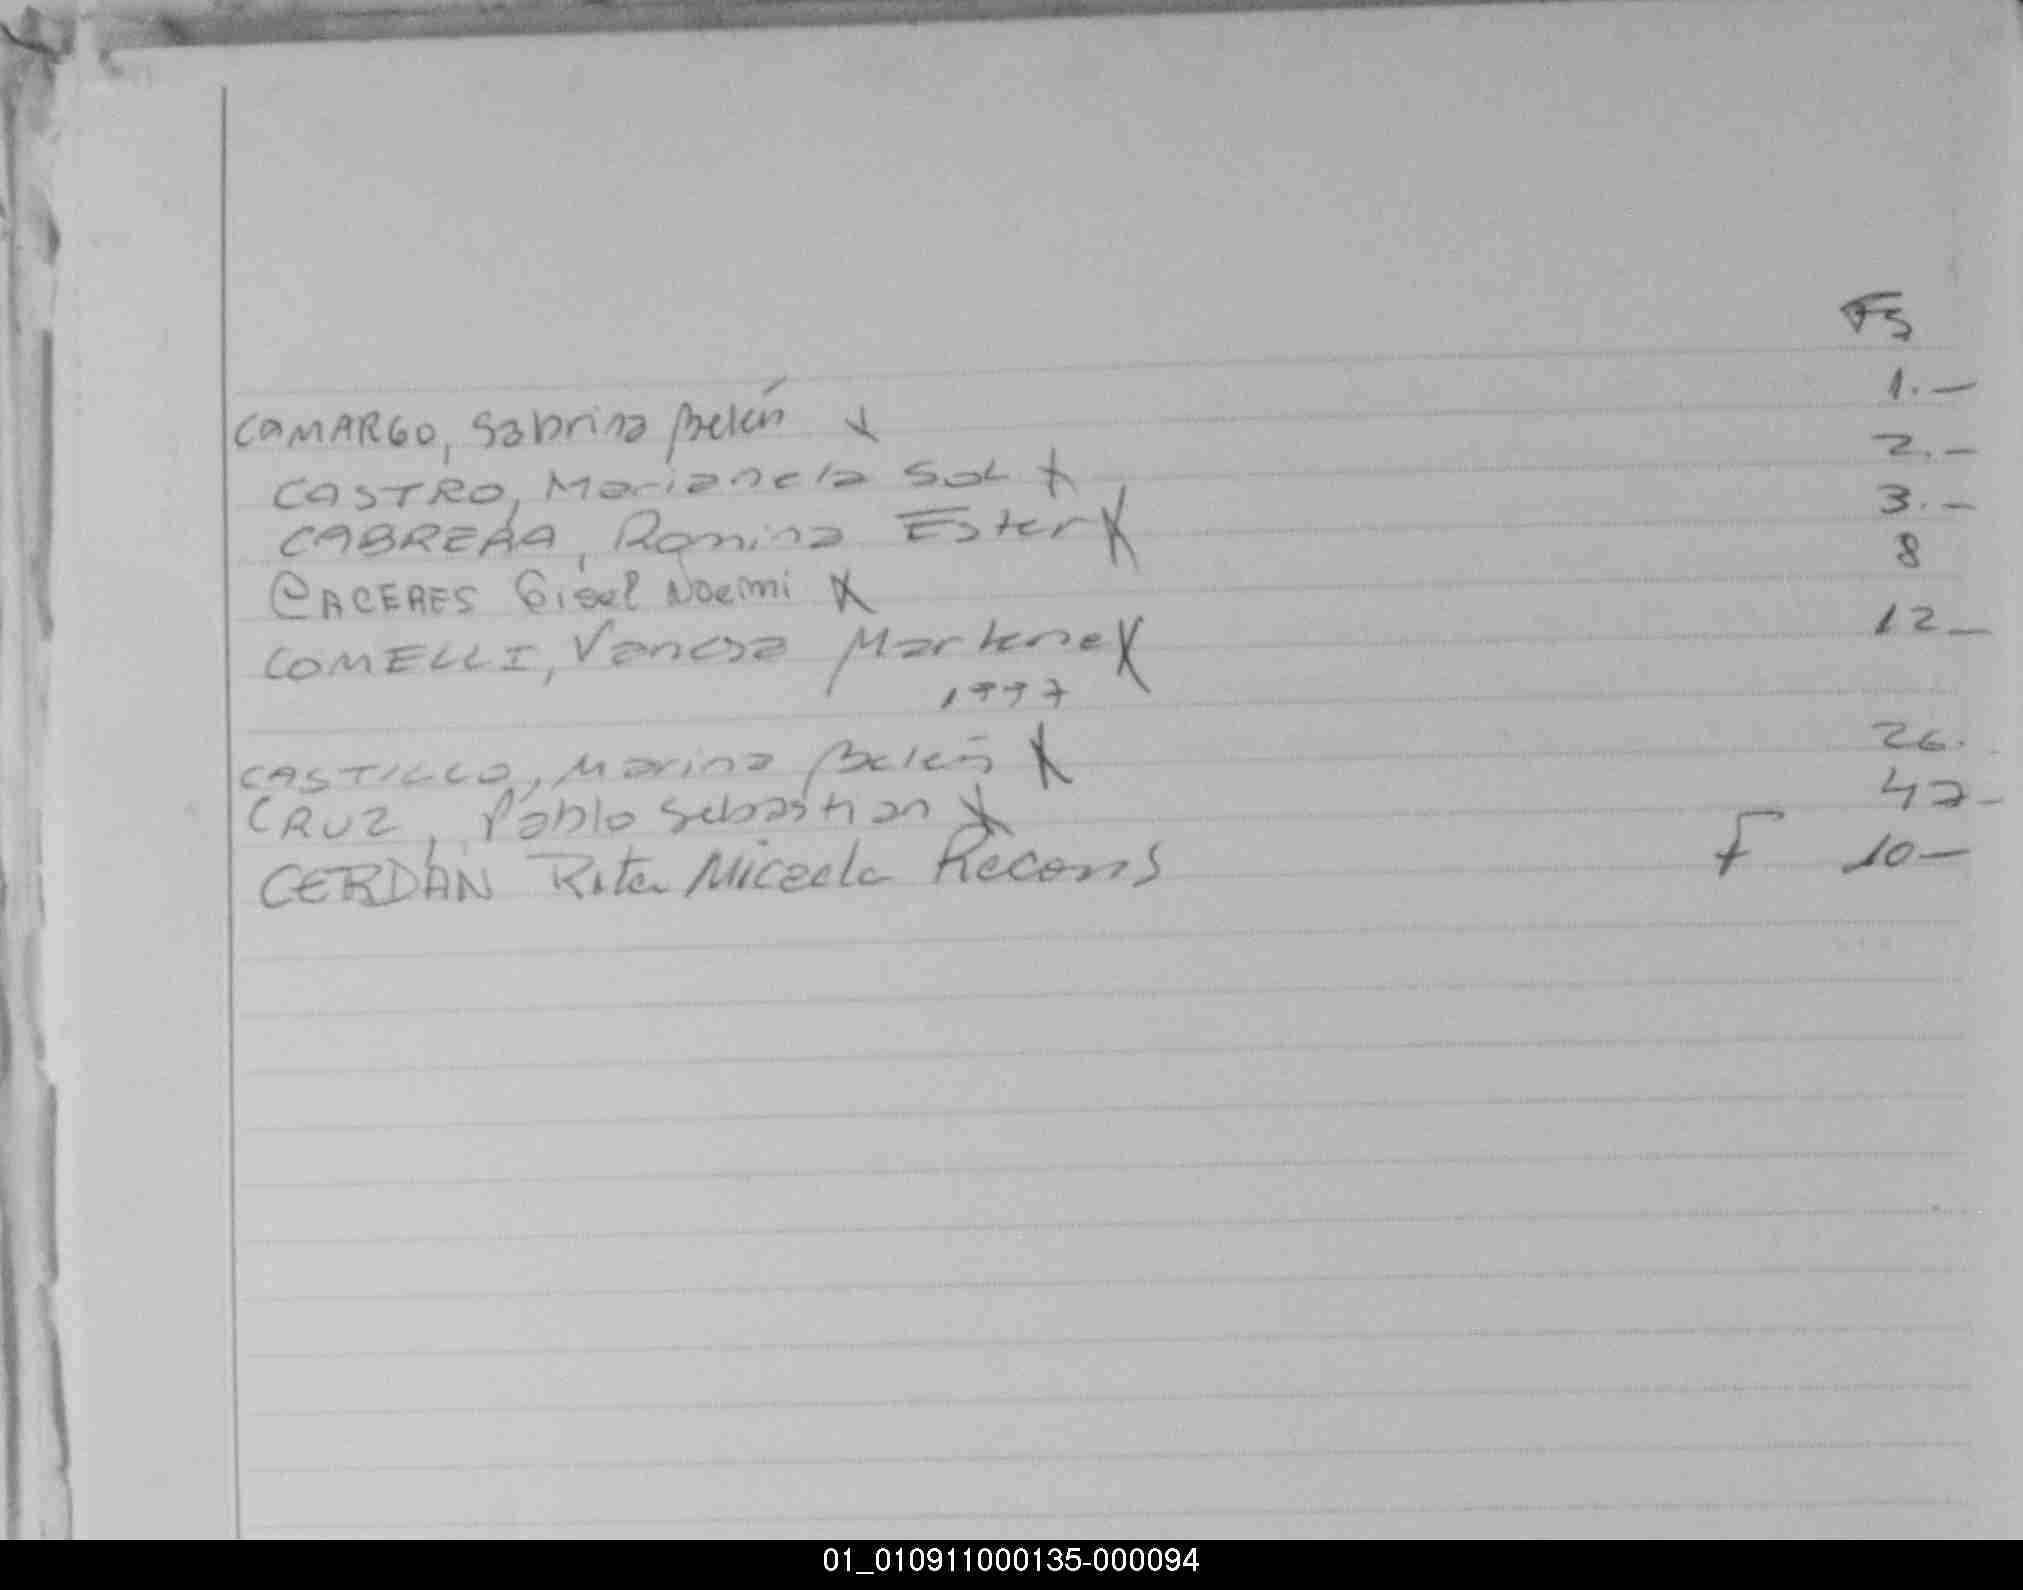 Fs
CAMARGO, Sabrina Belén X 1.-
CASTRO, Marianela Sol X 2.-
CABRERA, Romina Ester X 3.-
CACERES Gisel Noemi X 8
COMELLI, Vanesa Marlene X 12-
1997
CASTILLO, Marina Belén X 26.
CRUZ, Pablo Sebastian X 47-
CERDÁN Rita Micaela Recons F 10-
01_010911000135-000094